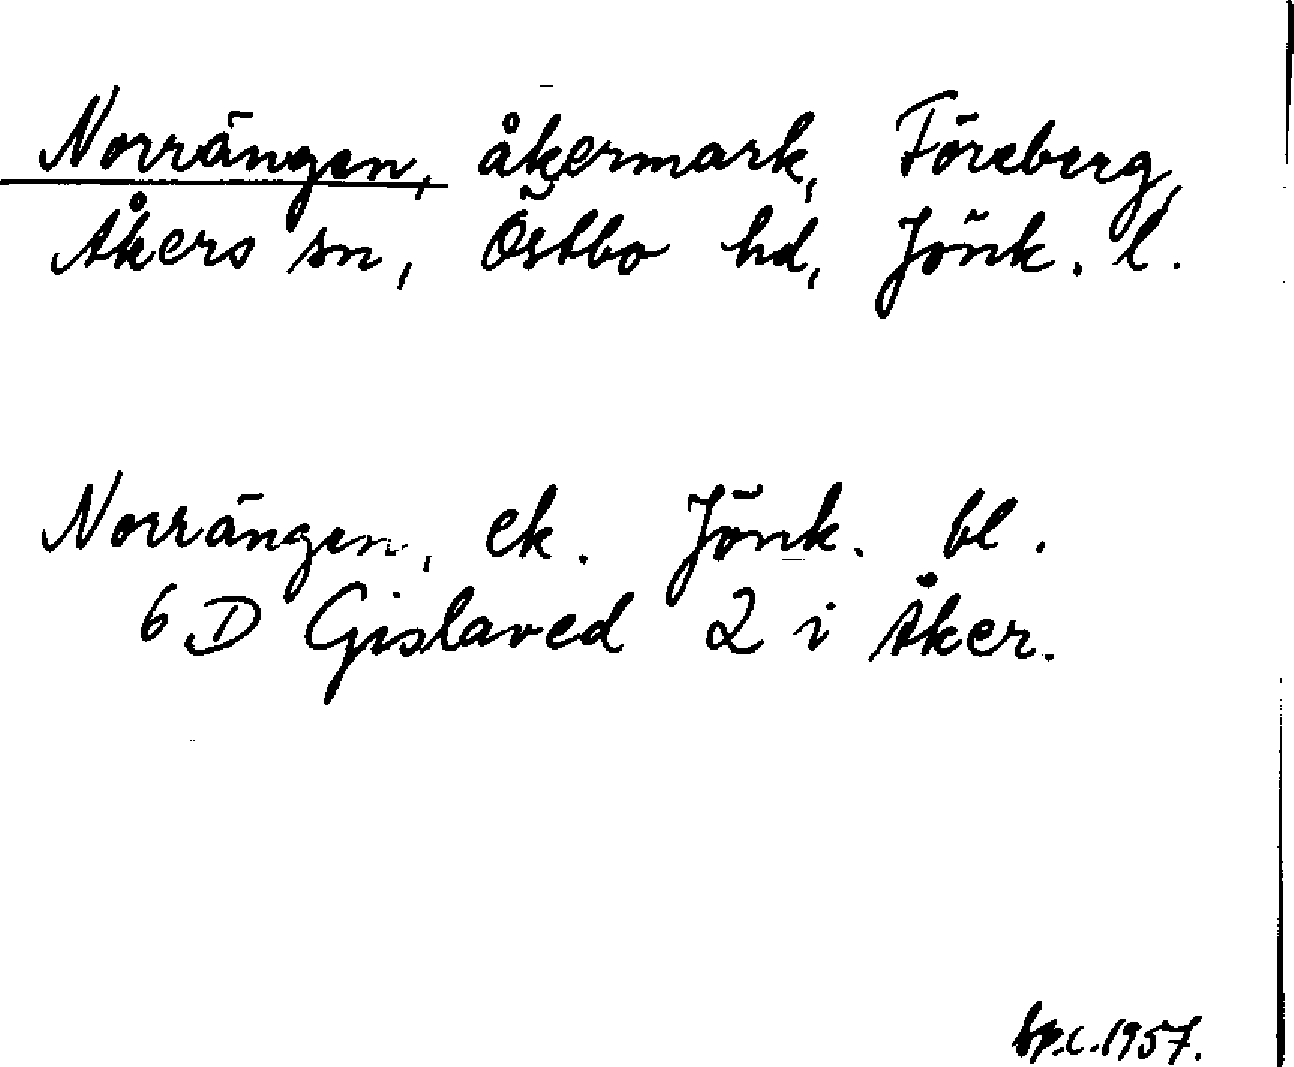 Norrängen, åkermark, Föreberg,
Åkers sn, Östbo hd, Jönk. l.
Norrängen, ek. Jönk. bl.
6 D Gislaved 2 i Åker.
1957.